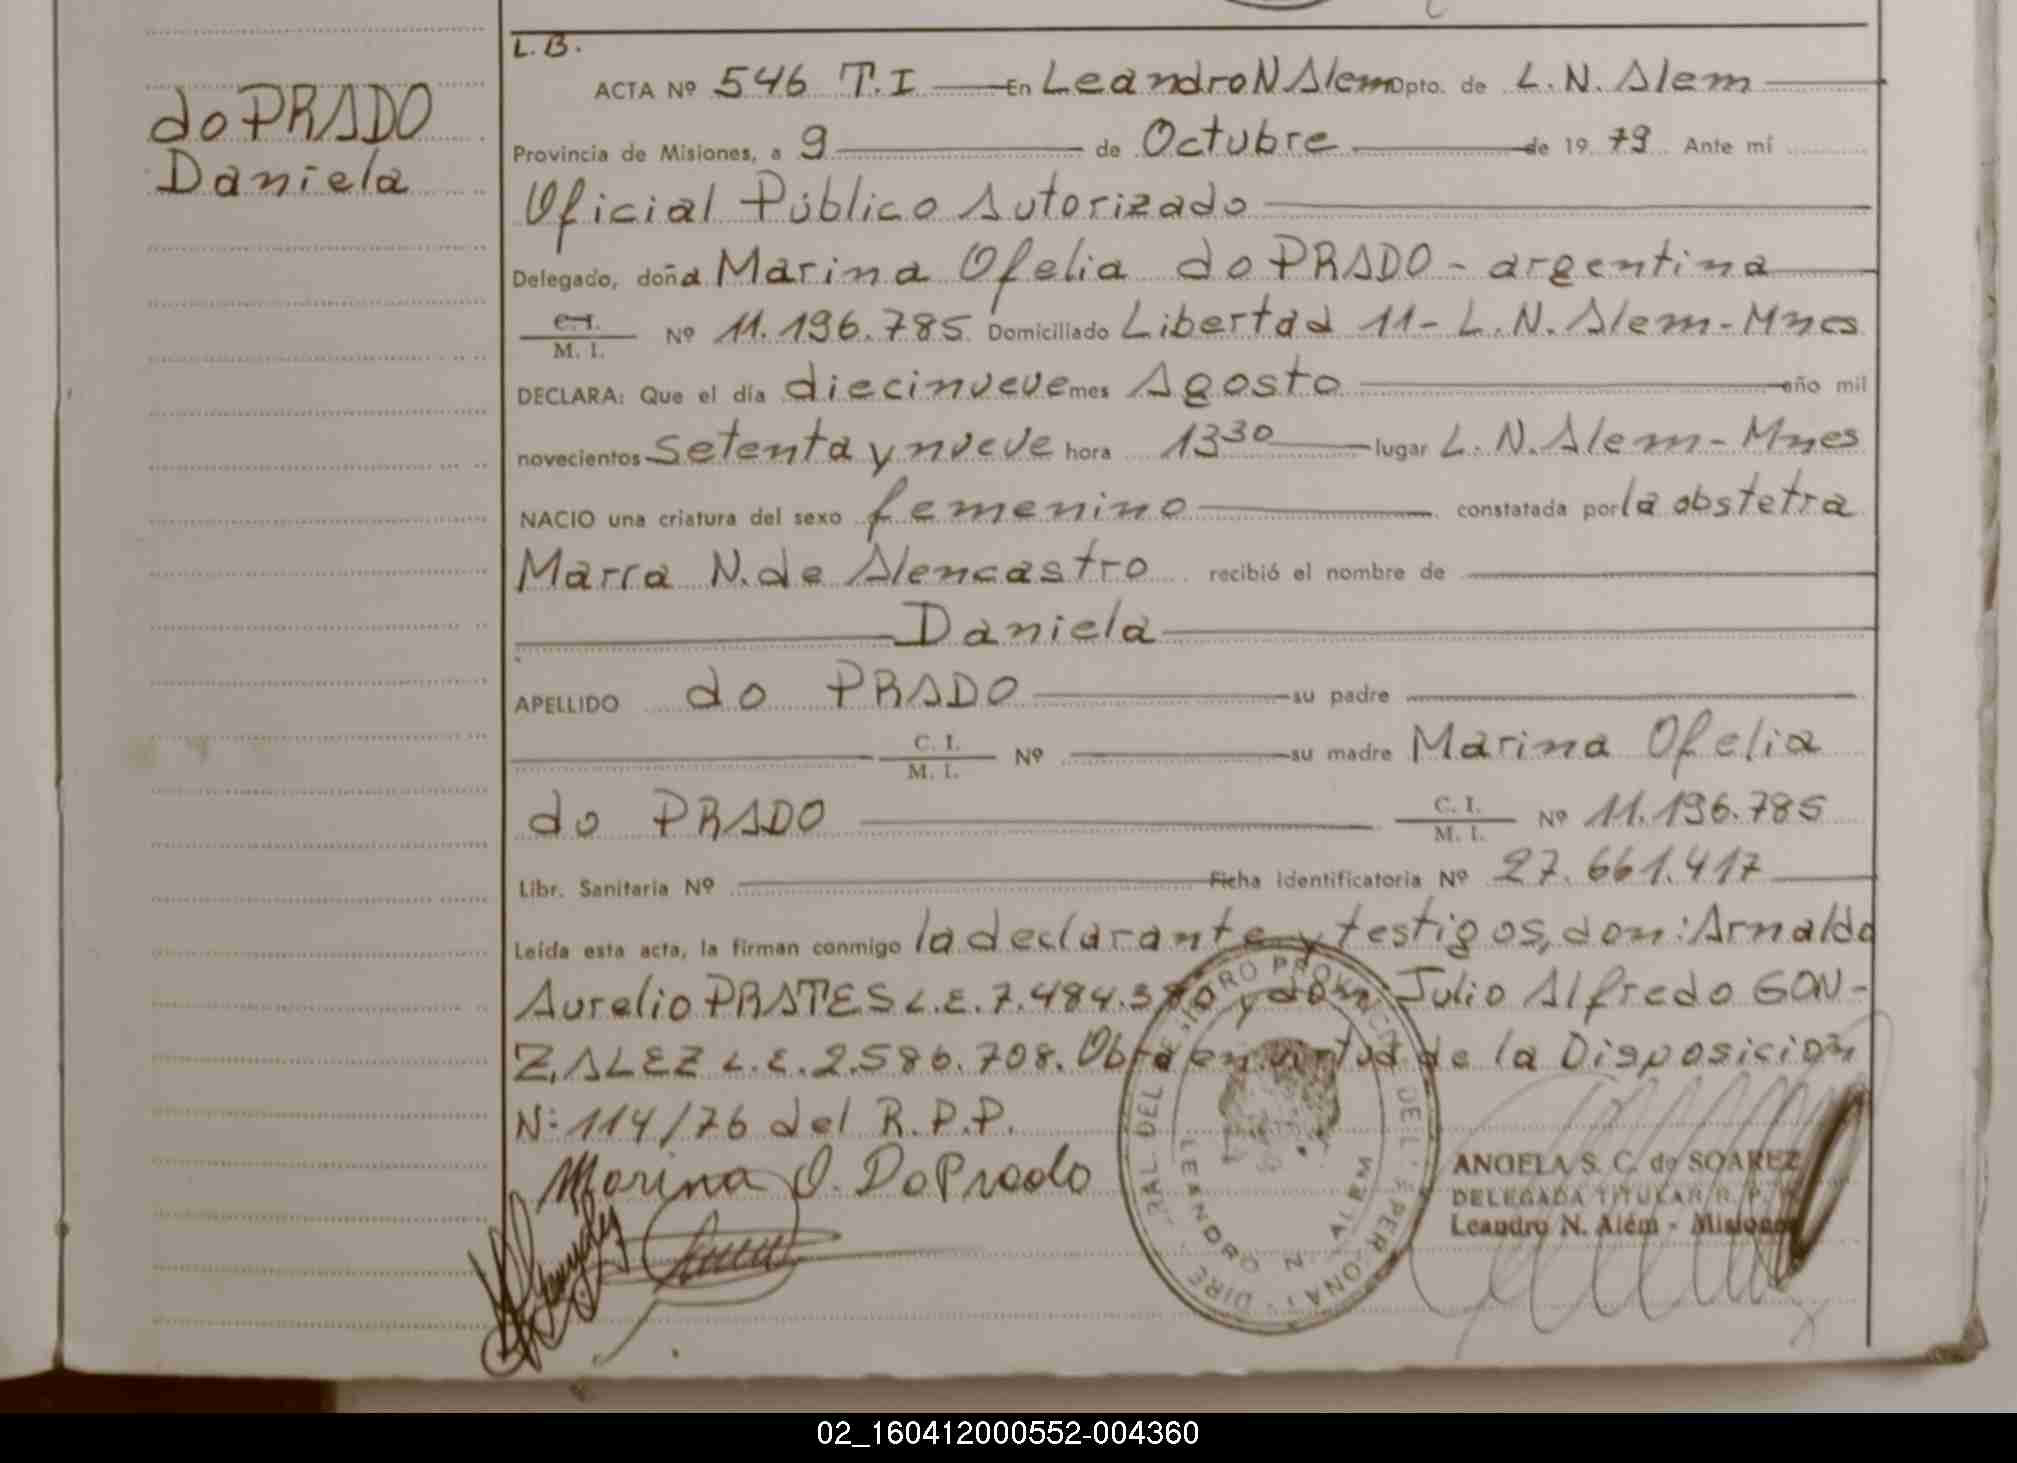 L. B.
do PRADO
Daniela
ACTA Nº 546 T.I En Leandro N Alem Dpto. de L. N. Alem
Provincia de Misiones, a 9 de Octubre de 19 79 Ante mí
Oficial Público Autorizado
Delegado, doña Marina Ofelia do PRADO - argentina
C.I. / M. I. Nº 11.196.785 Domiciliado Libertad 11 - L. N. Alem - Mnes
DECLARA: Que el día diecinueve mes Agosto año mil
novecientos setenta y nueve hora 13 30 lugar L. N. Alem - Mnes
NACIO una criatura del sexo femenino constatada por la obstetra
Marra N. de Alencastro recibió el nombre de
Daniela
APELLIDO do PRADO su padre
C. I. / M. I. Nº su madre Marina Ofelia
do PRADO C. I. / M. I. Nº 11.196.785
Libr. Sanitaria Nº Ficha identificatoria Nº 27.661.417
Leída esta acta, la firman conmigo la declarante y testigos, don: Arnaldo
Aurelio PRATES L.E. 7.484.380 y don Julio Alfredo GON-
ZALEZ L.E. 2.586.708. Obra en virtud de la Disposición
N: 114/76 del R.P.P.
Marina O. Do Prado
LEANDRO N. ALEM
ANGELA S. C. de SOAREZ
DELEGADA TITULAR R. P. P.
Leandro N. Além - Misiones
02_160412000552-004360